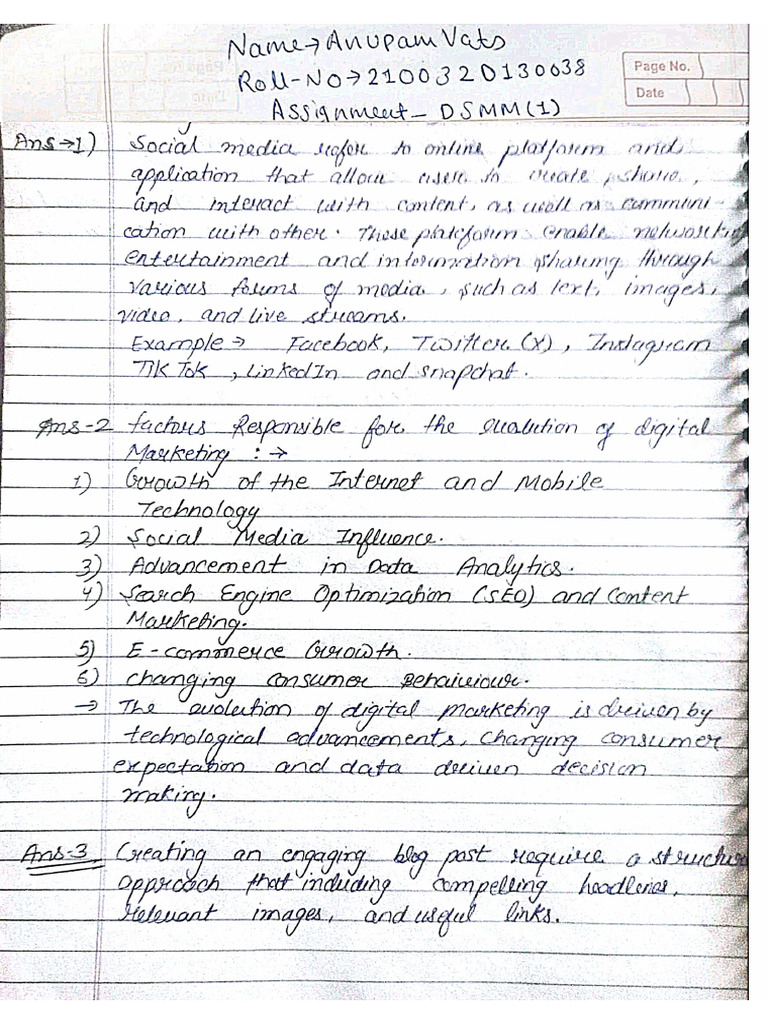 Name→Anupam Vats
Roll-No→2100320130038
Page No.
Assignment - DSMM(1)
Date
Ans→1) Social media refer to online platform and
application that allow users to create, share,
and interact with content, as well as communi-
cation with other. These platform enable networking
entertainment and information sharing through
various forms of media, such as text, images,
video, and live streams.
Example→ Facebook, Twitter (X), Instagram
TikTok, LinkedIn and snapchat.
Ans-2 factors Responsible for the evalution of digital
Marketing :→
1) Growth of the Internet and Mobile
Technology
2) Social Media Influence.
3) Advancement in Data Analytics.
4) Search Engine Optimization (SEO) and Content
Marketing.
5) E-commerce Growth.
6) changing consumer Behaiviour.
→ The evolution of digital marketing is driven by
technological advancements, changing consumer
expectation and data driven decision
making.
Ans-3 Creating an engaging blog post require a
approach that including compelling headlines,
relevant images, and useful links.